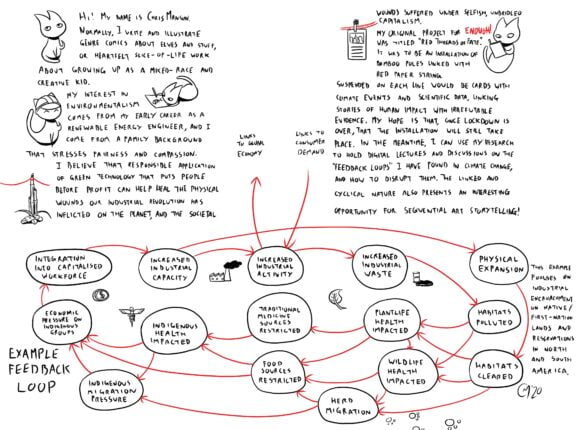 Hi! My name is Chris Manson.
Normally, I write and illustrate
genre comics about elves and stuff,
or heartfelt slice-of-life work
about growing up as a mixed-race and
creative kid.
My interest in
environmentalism
comes from my early career as a
renewable energy engineer, and I
come from a family background
that stresses fairness and compassion.
I believe that responsible application
of green technology that puts people
before profit can help heal the physical
wounds our industrial revolution has
inflicted on the planet, and the societal
wounds suffered under selfish, unbridled
capitalism.
My original project for ENOUGH!
was titled "Red Threads of Fate".
It was to be an installation of
bamboo poles linked with
red paper string.
Suspended on each line would be cards with
climate events and scientific data, linking
stories of human impact with irrefutable
evidence. My hope is that, once lockdown is
over, that the installation will still take
place. In the meantime, I can use my research
to hold digital lectures and discussions on the
"feedback loops" I have found in climate change,
and how to disrupt them. The linked and
cyclical nature also presents an interesting
opportunity for sequential art storytelling!
Links
to global
economy
Links to
consumer
demand
Integration
into capitalised
workforce
Increased
industrial
capacity
Increased
industrial
activity
Increased
industrial
waste
Physical
expansion
Economic
pressure on
indigenous
groups
Indigenous
health
impacted
Traditional
medicine
sources
restricted
Plantlife
health
impacted
Habitats
polluted
This example
focuses on
industrial
encroachment
on native/
first-nation
lands and
reservations
in North
and South
America.
Example
feedback
loop
Indigenous
migration
pressure
Food
sources
restricted
Wildlife
health
impacted
Habitats
cleared
Herd
migration
'20